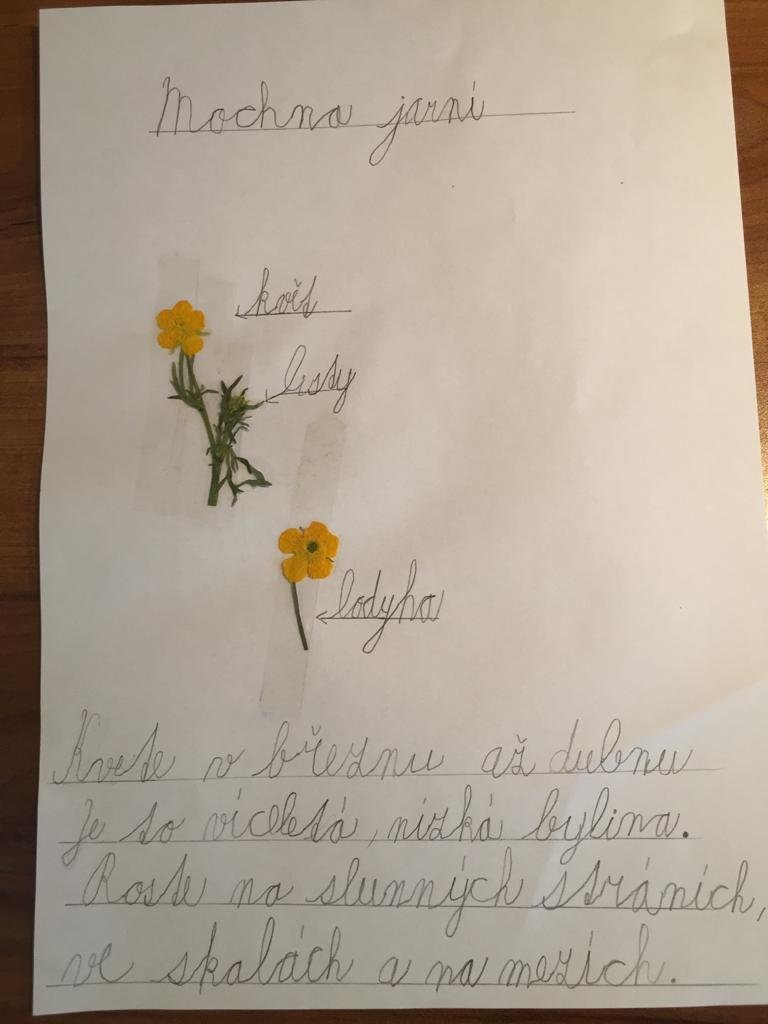 Mochna jarní
květ
listy
lodyha
Kvete v březnu až dubnu
Je to víceletá, nízká bylina.
Roste na slunných stráních,
ve skalách a na mezích.